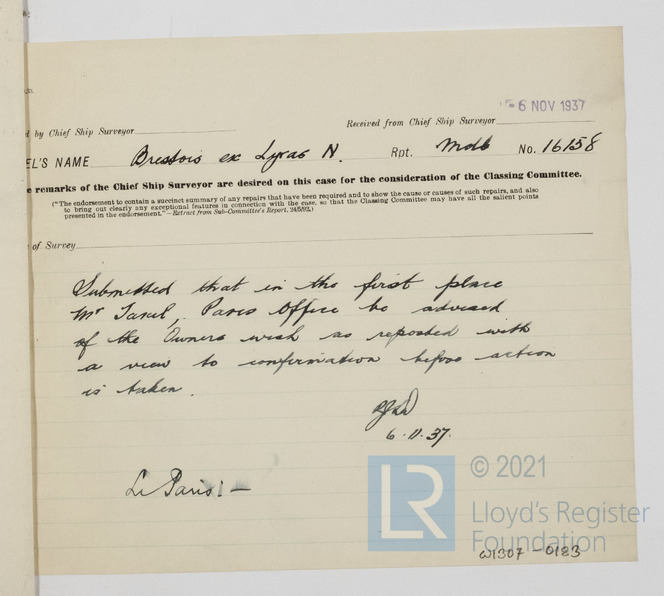 6 NOV 1937
d by Chief Ship Surveyor
Received from Chief Ship Surveyor
EL'S NAME Brestois ex Lyras N. Rpt. Mdb No. 16158
e remarks of the Chief Ship Surveyor are desired on this case for the consideration of the Classing Committee.
("The endorsement to contain a succinct summary of any repairs that have been required and to show the cause or causes of such repairs, and also
to bring out clearly any exceptional features in connection with the case, so that the Classing Committee may have all the salient points
presented in the endorsement."—Retract from Sub-Committee's Report, 24/5/92.)
of Survey
Submitted that in the first place
Mr , Paris Office be advised
of the Owners wish as reported with
a view to confirmation before action
is taken.
6.11.37.
Paris:—
LR
© 2021
Lloyd's Register
Foundation
W1307-0183